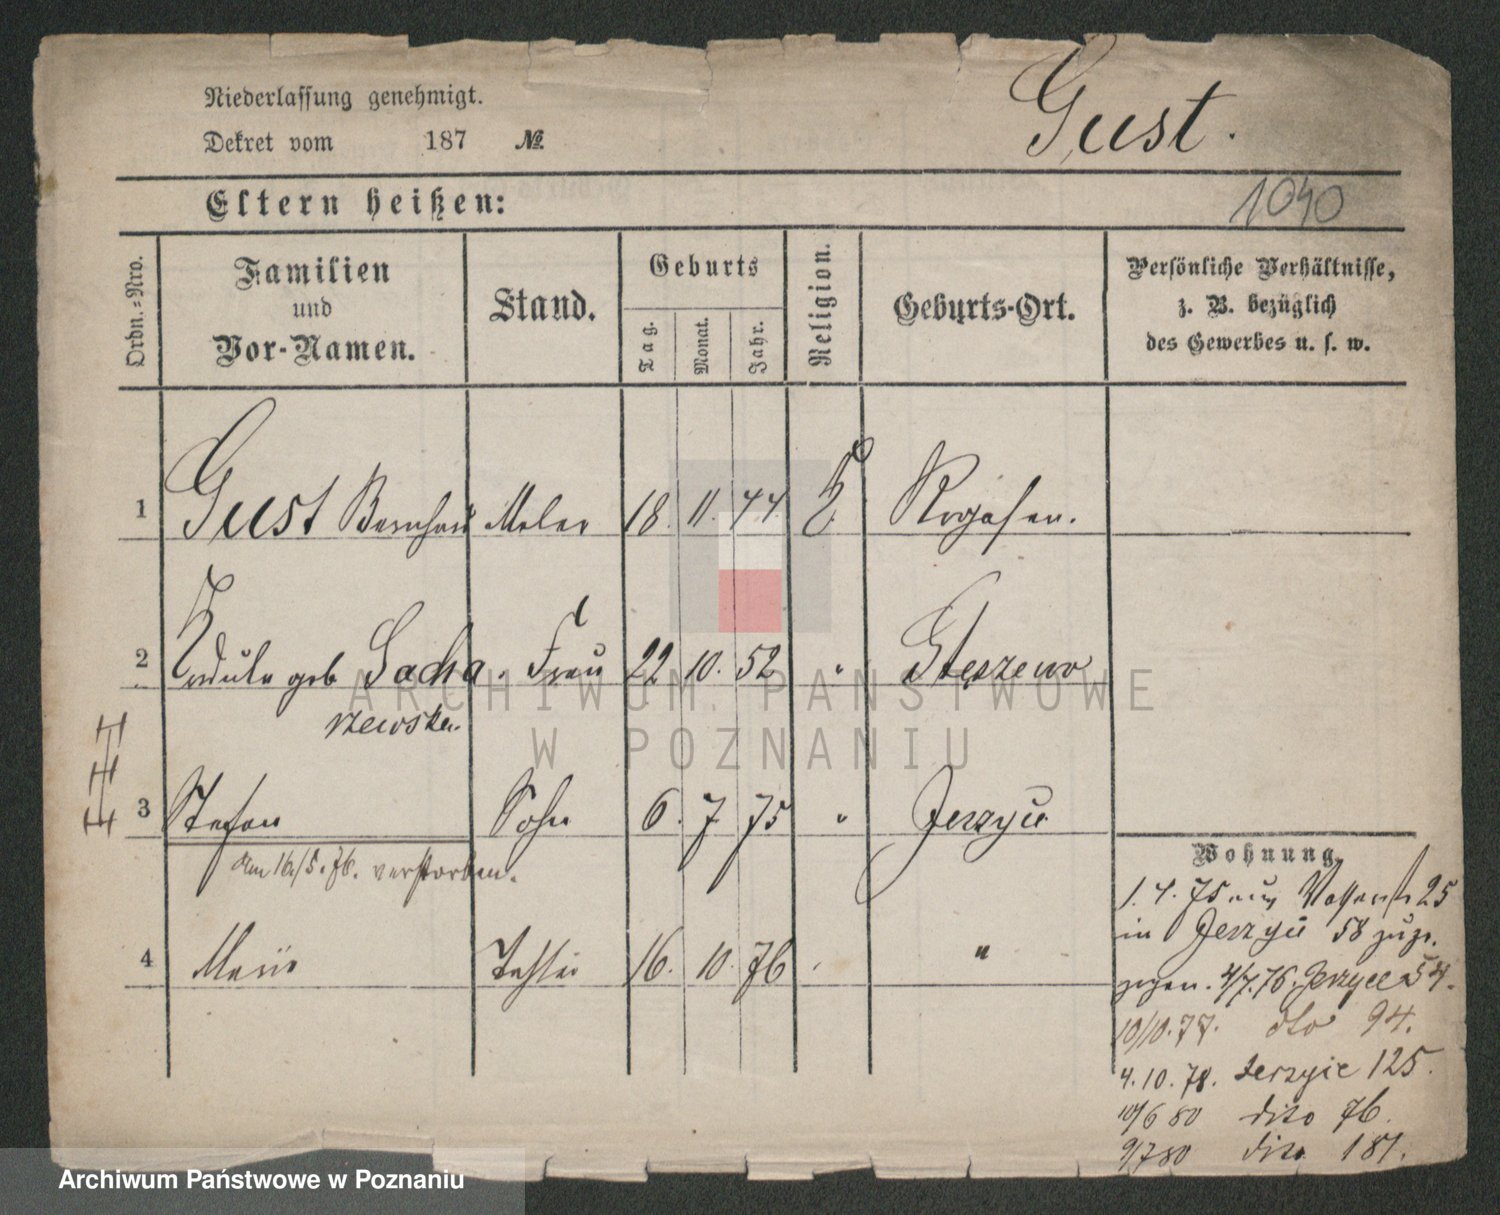 Niederlassung genehmigt.
Dekret vom 187 №
Gust.
Eltern heißen:
1040
Ordn.-Nro.
Familien
und
Vor-Namen.
Stand.
Geburts
Tag.
Monat.
Jahr.
Religion.
Geburts-Ort.
Persönliche Verhältnisse,
z. B. bezüglich
des Gewerbes u. s. w.
1 Gust Bernhard Maler 18. 11. 44 Rogasen.
2 geb Sacha Frau 22 10. 52 "
rzewska.
3 Stefan Sohn 6. 7 75 " Jerzyce
den 16/5. 76. verstorben.
4 Marie Tochter 16. 10. 76 "
Wohnung.
1. 4. 75 aus 25
in Jerzyce 58 zuge
zogen. 4/7. 76. Jerzyce 54.
10/10. 77. dto 94.
4. 10. 78. Jerzyce 125.
10/6 80 dito 76.
9/7 80 dito 181.
ARCHIWUM PAŃSTWOWE
W POZNANIU
Archiwum Państwowe w Poznaniu